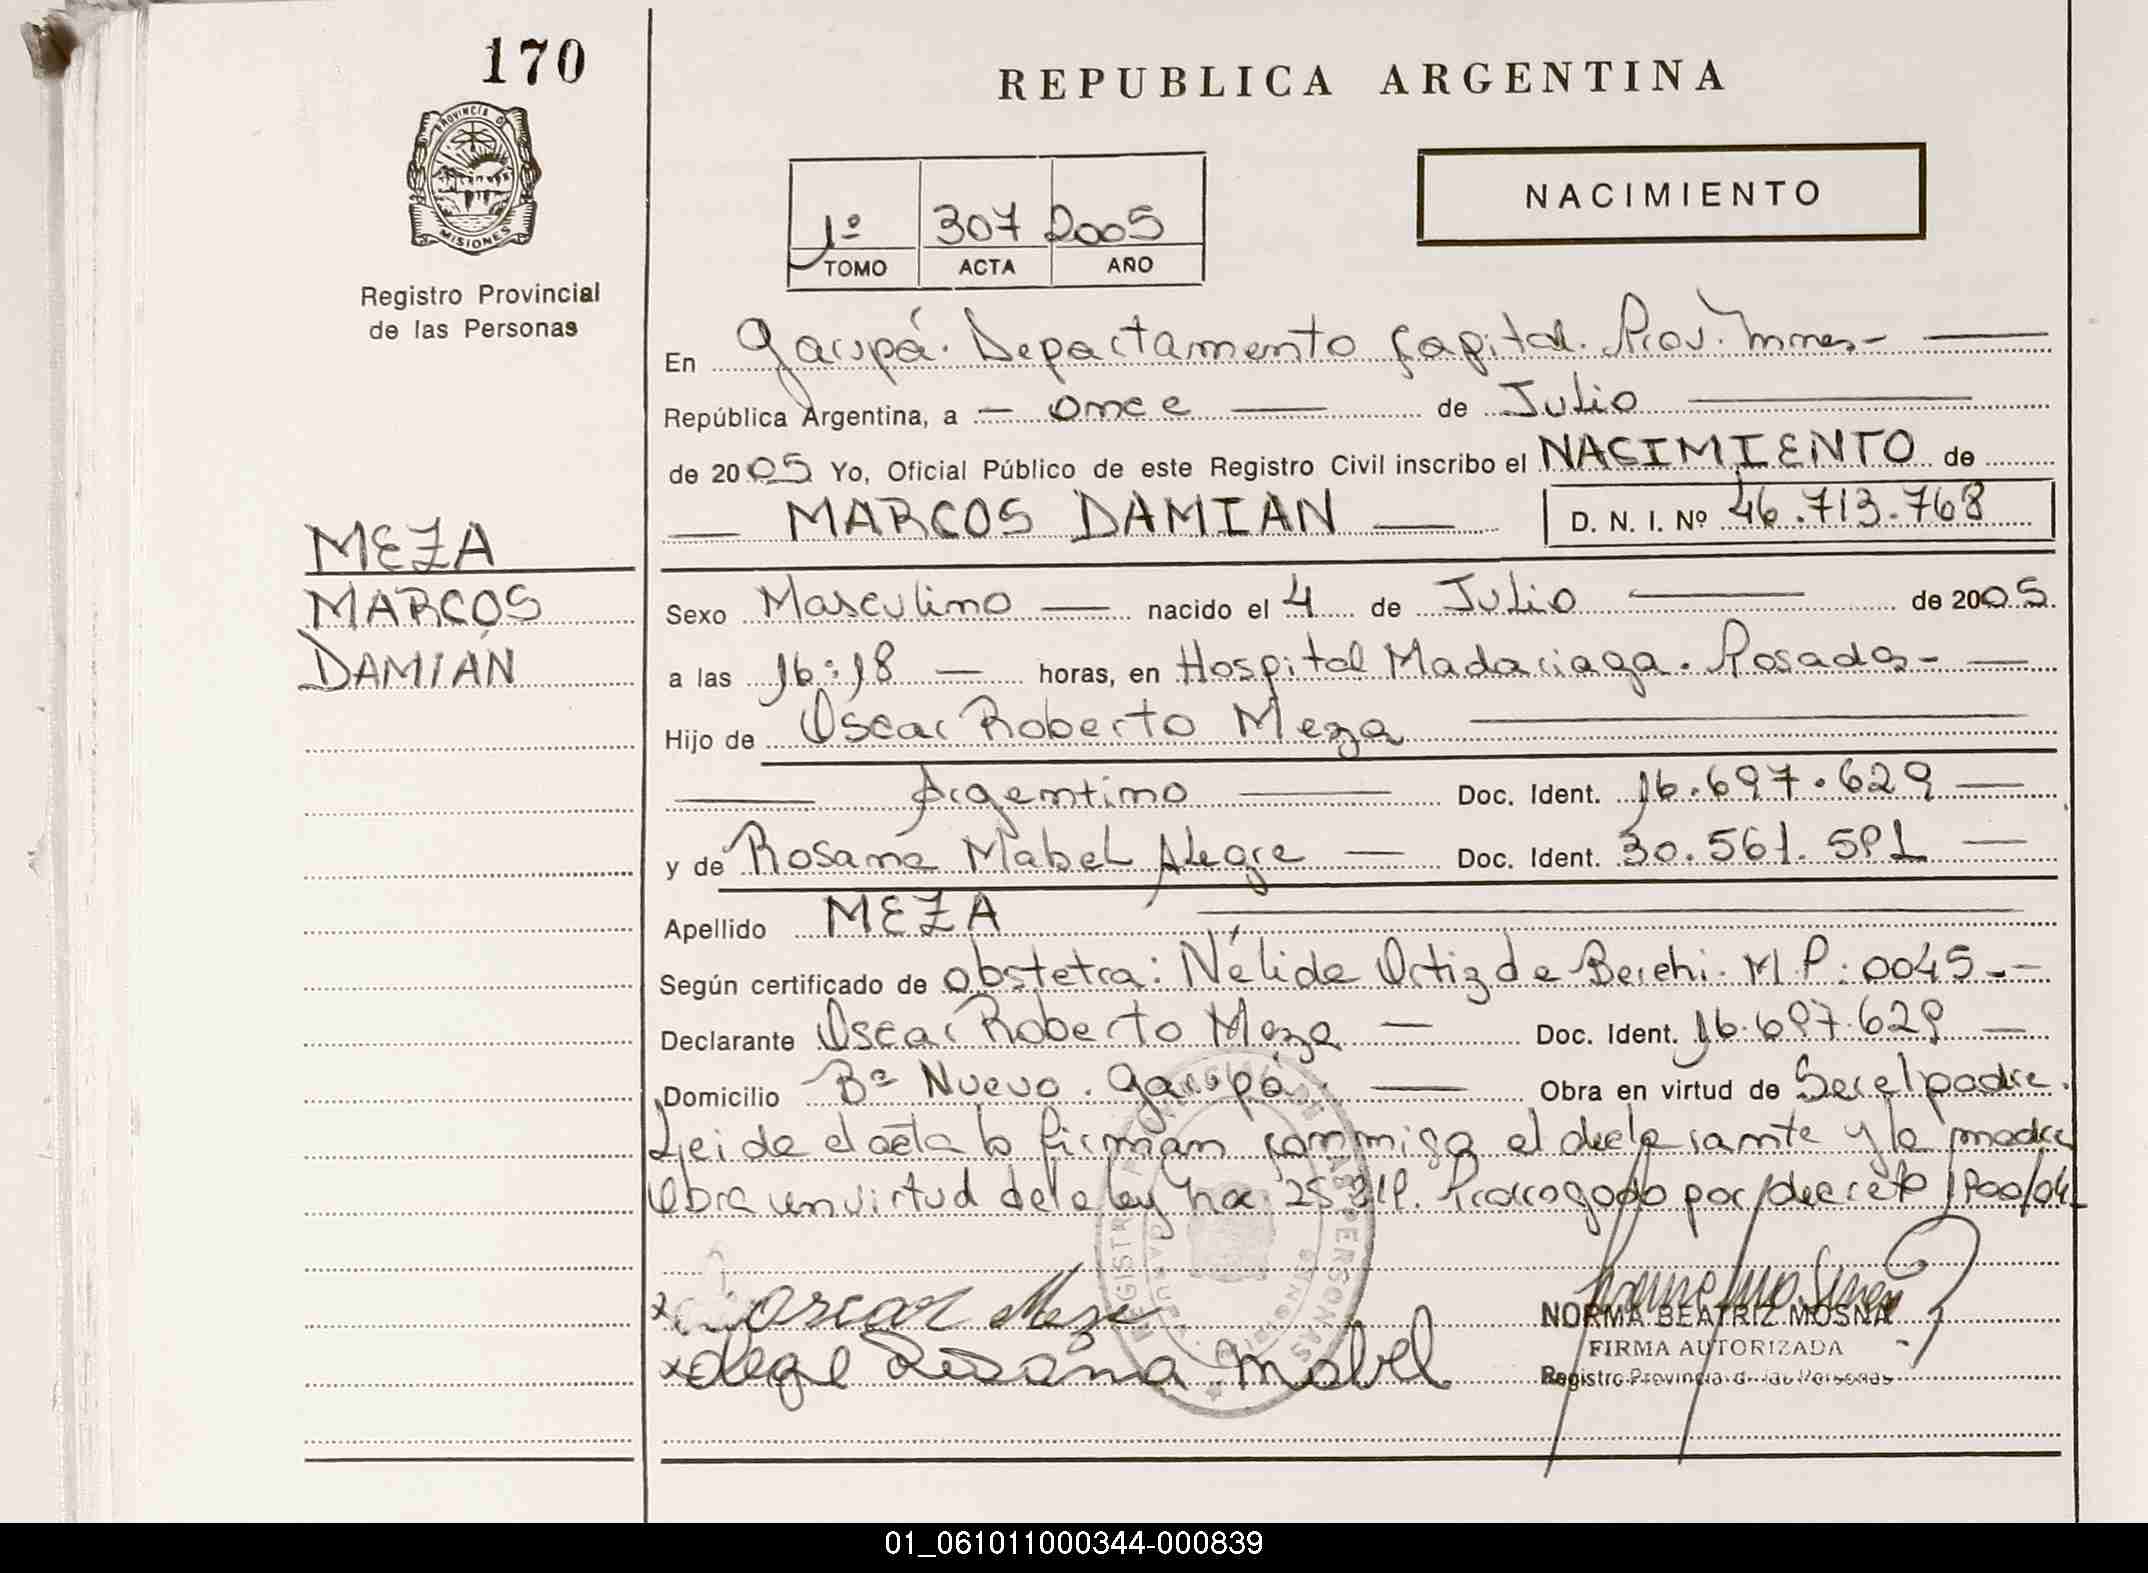 170
PROVINCIA D
MISIONES
Registro Provincial
de las Personas
REPUBLICA ARGENTINA
NACIMIENTO
1º 307 2005
TOMO ACTA AÑO
En Garupá. Departamento Capital. Prov. Mnes-
República Argentina, a - once de Julio
de 2005 Yo, Oficial Público de este Registro Civil inscribo el NACIMIENTO de
MARCOS DAMIAN D. N. I. Nº 46.713.768
MEZA
MARCOS
DAMIAN
Sexo Masculino nacido el 4 de Julio de 2005.
a las 16:18 horas, en Hospital Madariaga. Posadas-
Hijo de Oscar Roberto Meza
Argentino Doc. Ident. 16.697.629
y de Rosana Mabel Alegre Doc. Ident. 30.561.591
Apellido MEZA
Según certificado de obstetra: Nélida Ortiz de Berchi. M.P: 0045.-
Declarante Oscar Roberto Meza Doc. Ident. 16.697.629
Domicilio Bº Nuevo. Garupá Obra en virtud de Ser el padre.
Leida el acta la firman conmigo el declarante y la madre
Obra en virtud de la ley nº 25.819. Prorrogado por decreto 1900/04
Oscar Meza
Alegre Rosana Mabel
NORMA BEATRIZ MOSNA
FIRMA AUTORIZADA
Registro Provincial de las Personas
01_061011000344-000839